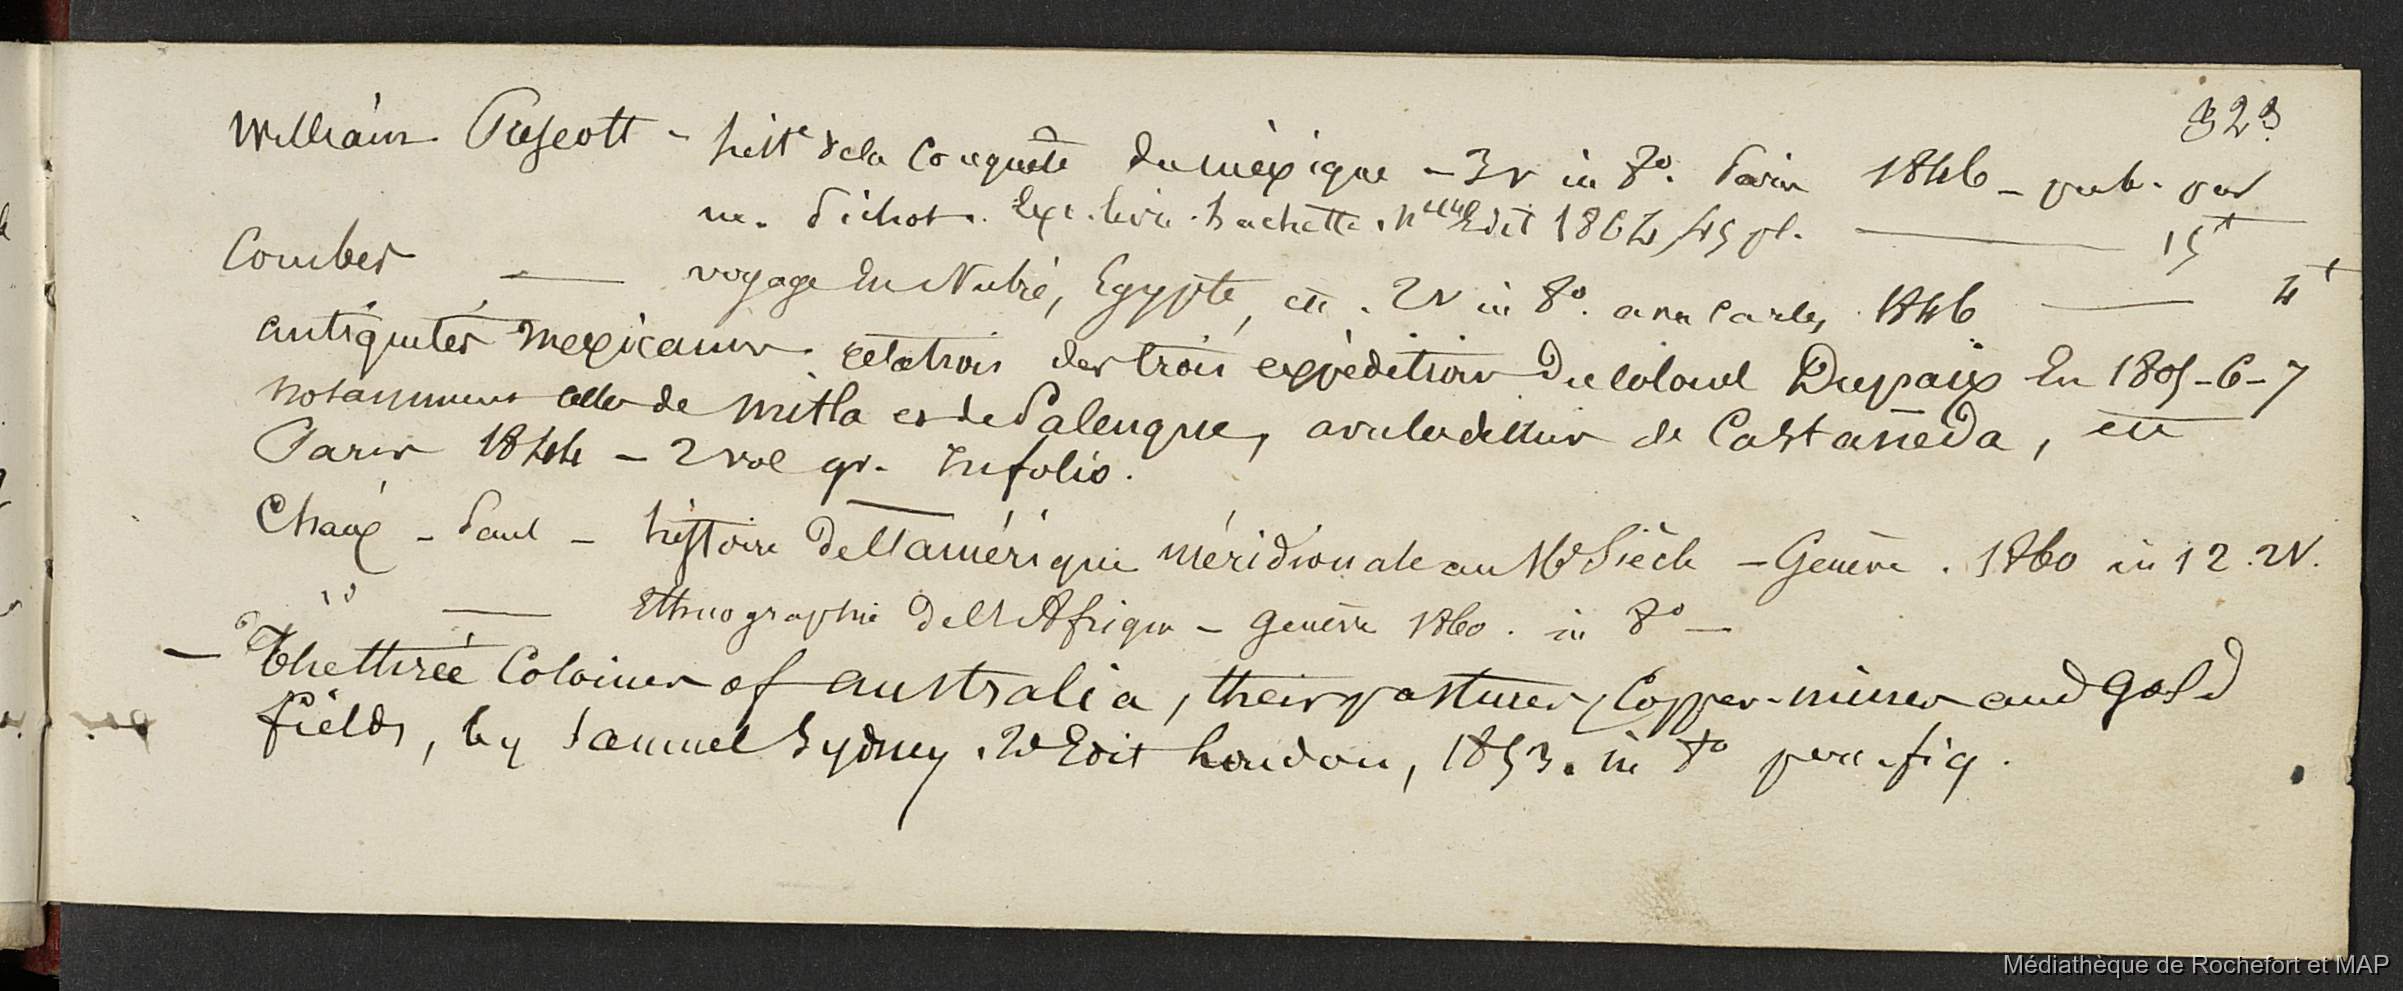 323
William Prescott - histre de la Conquête du mexique - 3v in 8o. Paris 1846 - pub. par
m. Pichot. Edit 1864, 45 pl. — 15f
Combes — voyage En Nubie, Egypte, etc. 2v in 8o. avec cartes, 1846 — 4f
antiquités mexicaines. relation des trois expéditions du colonel Dupaix En 1805-6-7
notamment celles de mitla et de Palenque, avec les dessins de Castañeda, etc
Paris 1844 - 2 vol gr. Infolio.
Chaix - Paul - histoire de l'amérique méridionale au 16e Siècle - Genève. 1860 in 12. 2v.
id — Ethnographie de l'Afrique - genève 1860. in 8o —
— The three Colonies of australia, their pastures, Copper-mines and gold
fields, by Samuel Sydney. 2d Edit London, 1853. in 8o perc. fig.
Médiathèque de Rochefort et MAP